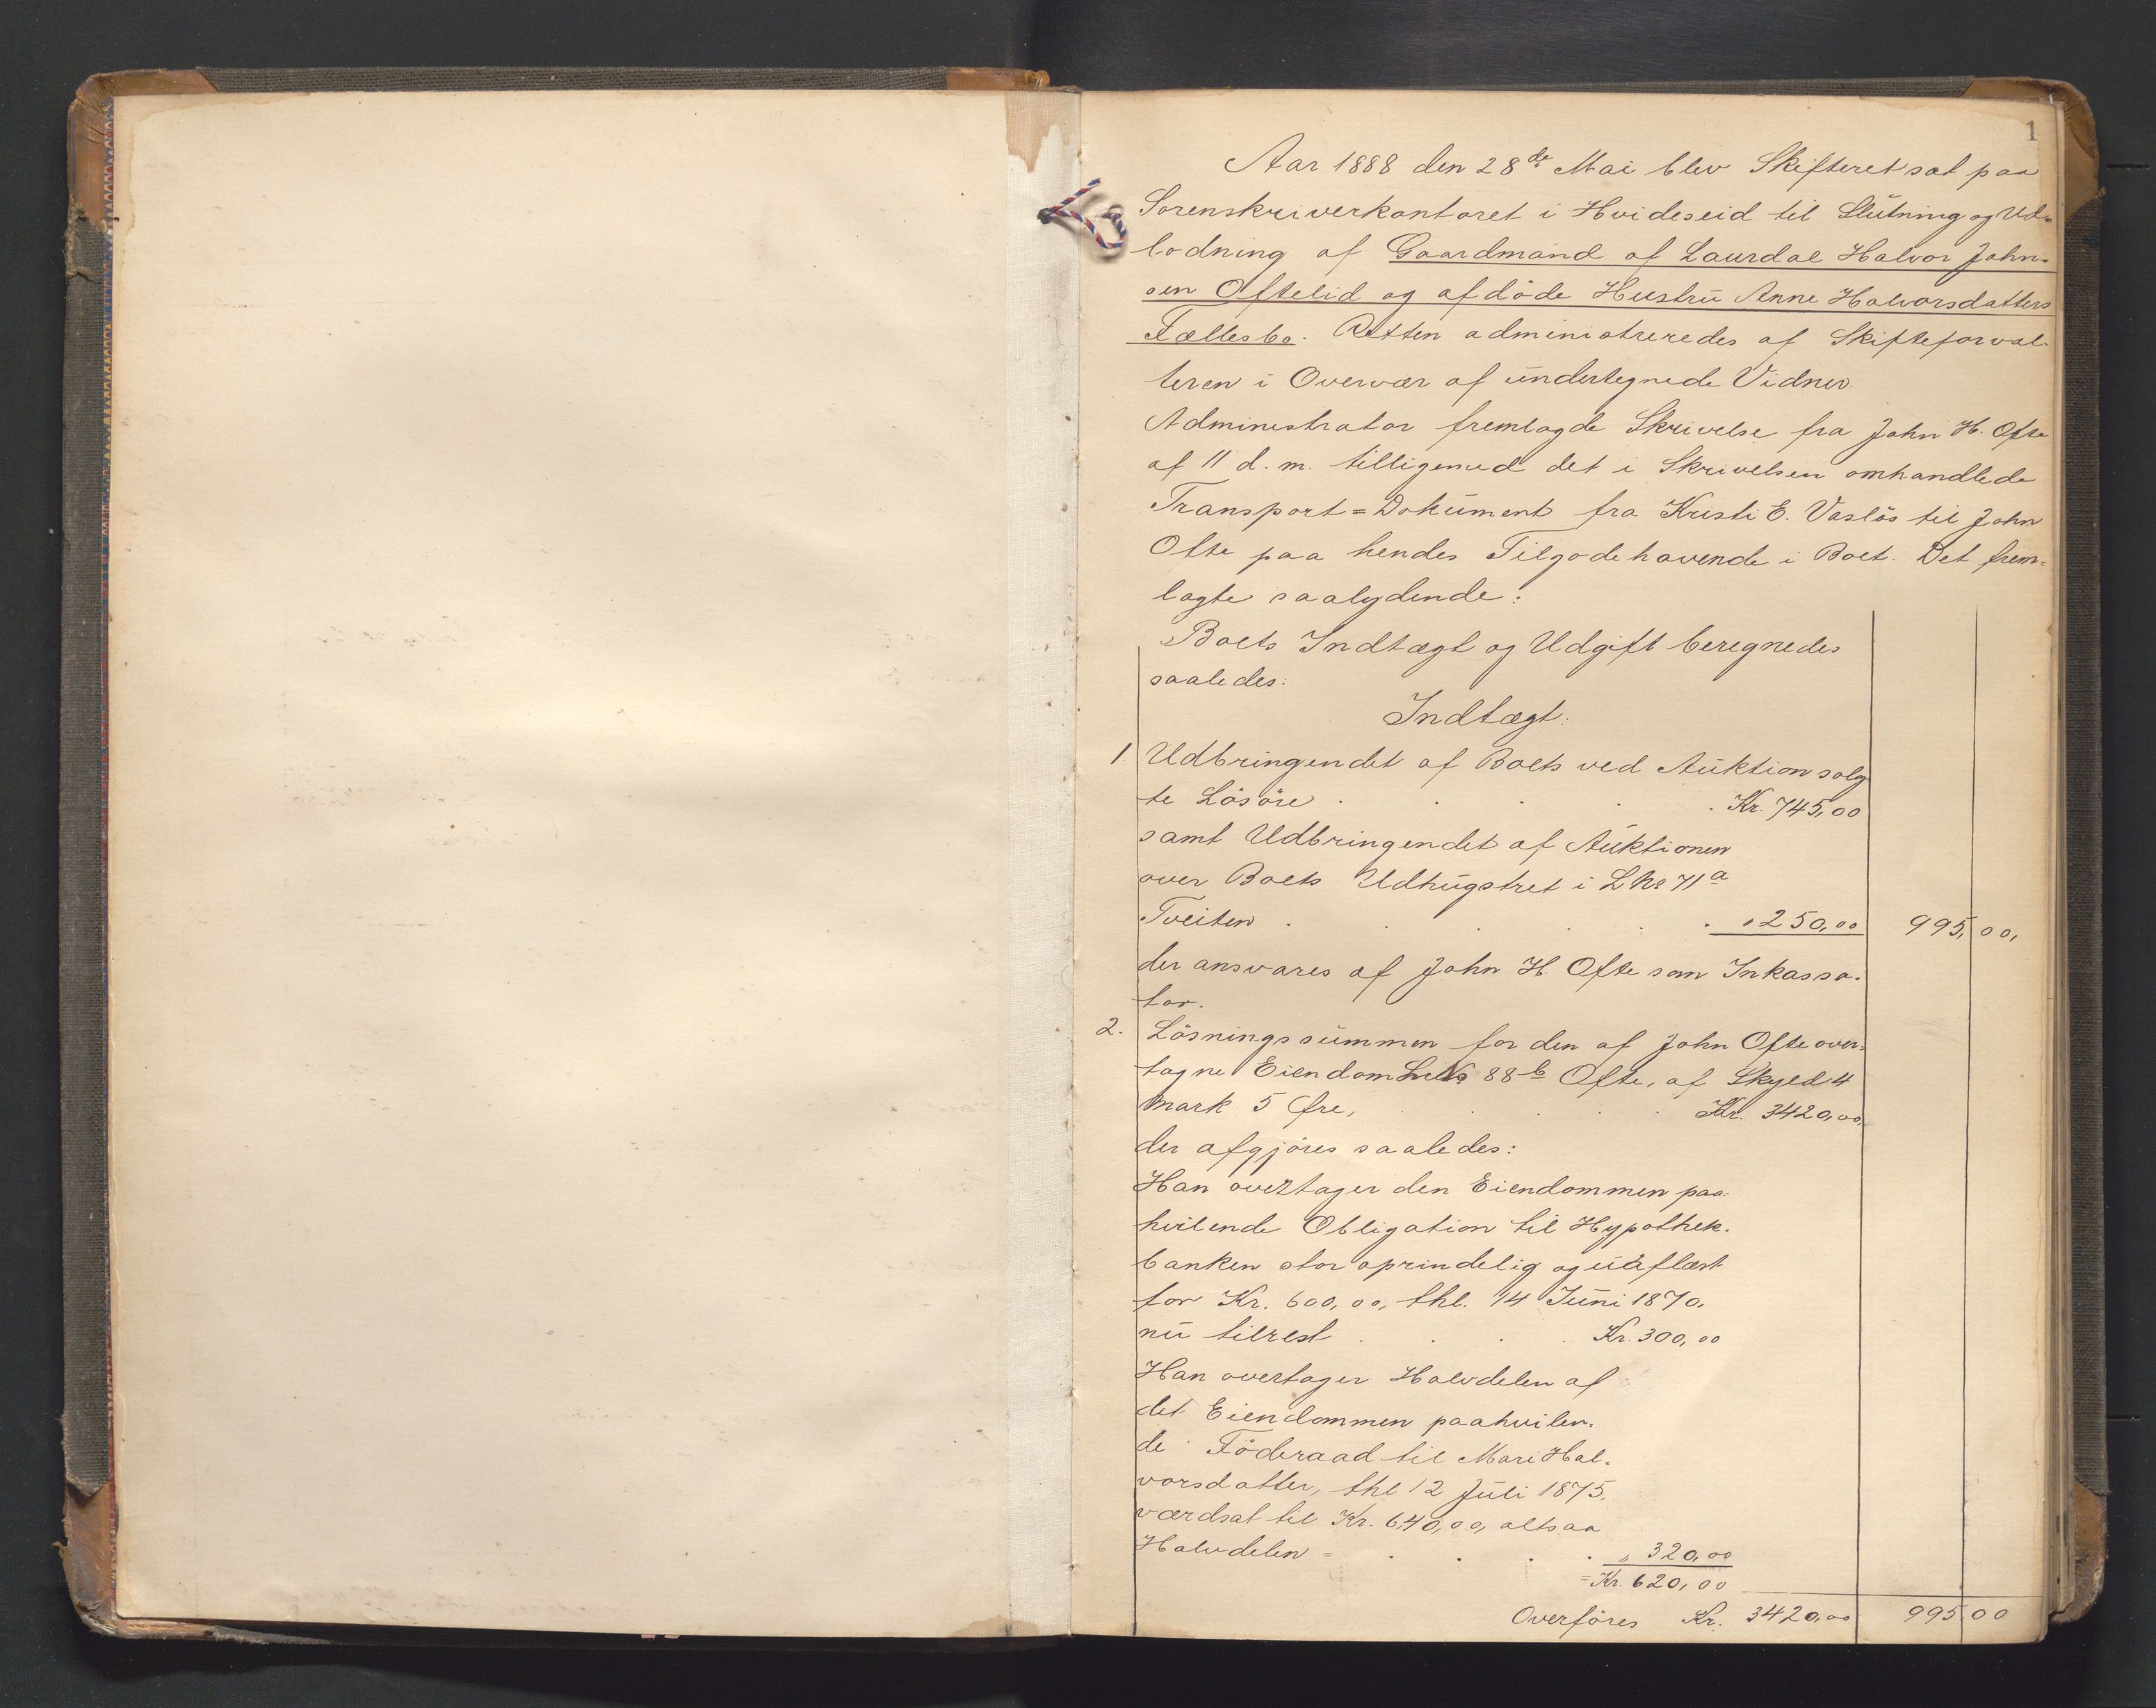 1
Aar 1888 den 28de Mai blev Skifteret sat paa
Sorenskriverkontoret i Hvideseid til Slutning og Ud=
lodning af Gaardmand af Laurdal Halvor John=
sen Oftelid og afdöde Hustru Anne Halvorsdatters
Fællesbo. Retten administreredes af Skifteforval-
teren i Overvær af undertegnede Vidner.
Administrator fremlagde Skrivelse fra John H. Ofte
af 11 d. m. tilligemed det i Skrivelsen omhandlede
Transport=Dokument fra Kristi E. Vaslös til John
Ofte paa hendes Tilgodehavende i Boet. Det frem=
lagte saalydende:
Boets Indtægt og Udgift beregnedes
saaledes:
Indtægt:
1. Udbringendet af Boets ved Auktion solg
te Lösöre . . . . . Kr. 745,00
samt Udbringendet af Auktionen
over Boets Udhugstret i L No 71a
Tveiten . . . . . " 250,00 995,00,
der ansvares af John H. Ofte som Inkassa-
tor.
2. Lösningssummen for den af John Ofte over=
tagne Eiendom No 88b Ofte, af Skyld 4
mark 5 Öre, . . . . Kr. 3420,00,
der afgjöres saaledes:
Han overtager den Eiendommen paa-
hvilende Obligation til Hypothek-
banken stor oprindelig og uaflæst
for Kr. 600,00, thl. 14 Juni 1870.
nu tilrest . . . Kr. 300,00
Han overtager Halvdelen af
det Eiendommen paahvilen-
de Föderaad til Mari Hal-
vorsdatter, thl 12 Juli 1875.
værdsat til Kr. 640,00, altsaa
Halvdelen = . . . . " 320,00
= Kr. 620,00
Overföres Kr. 3420,00 995,00